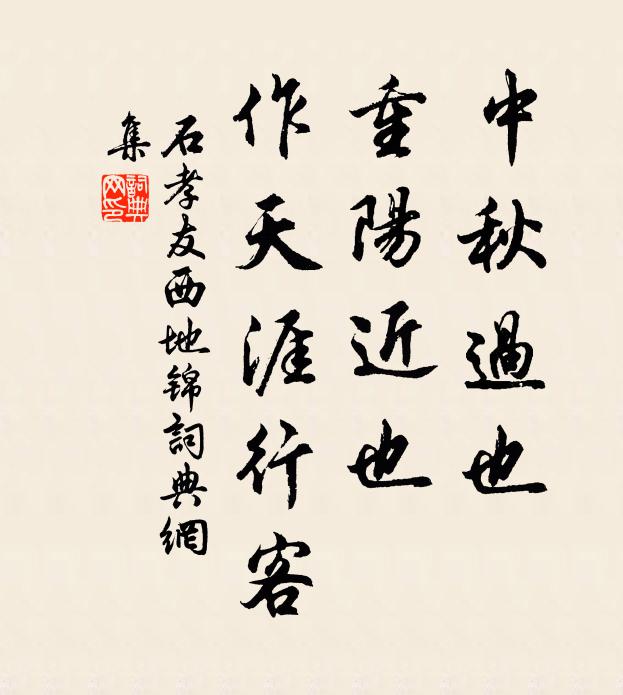 中秋過也
重陽近也
作天涯行客
石孝友西地锦詞典網
集
詞典
网印